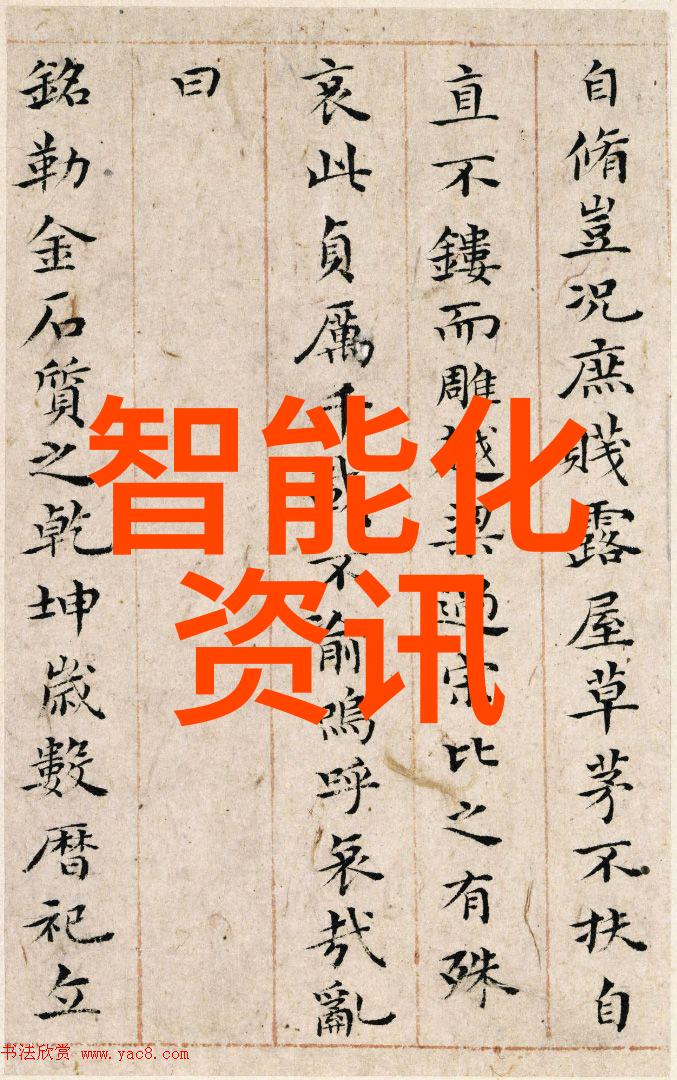 自脩豈況庶賤露屋草茅不扶自
直不鏤而雕越梁過宗比之有殊
哀此貞厲千載不渝嗚呼哀哉亂
曰
銘勒金石質之乾坤歲數暦祀立
智能化
资讯
书法欣赏 www.yac8.com